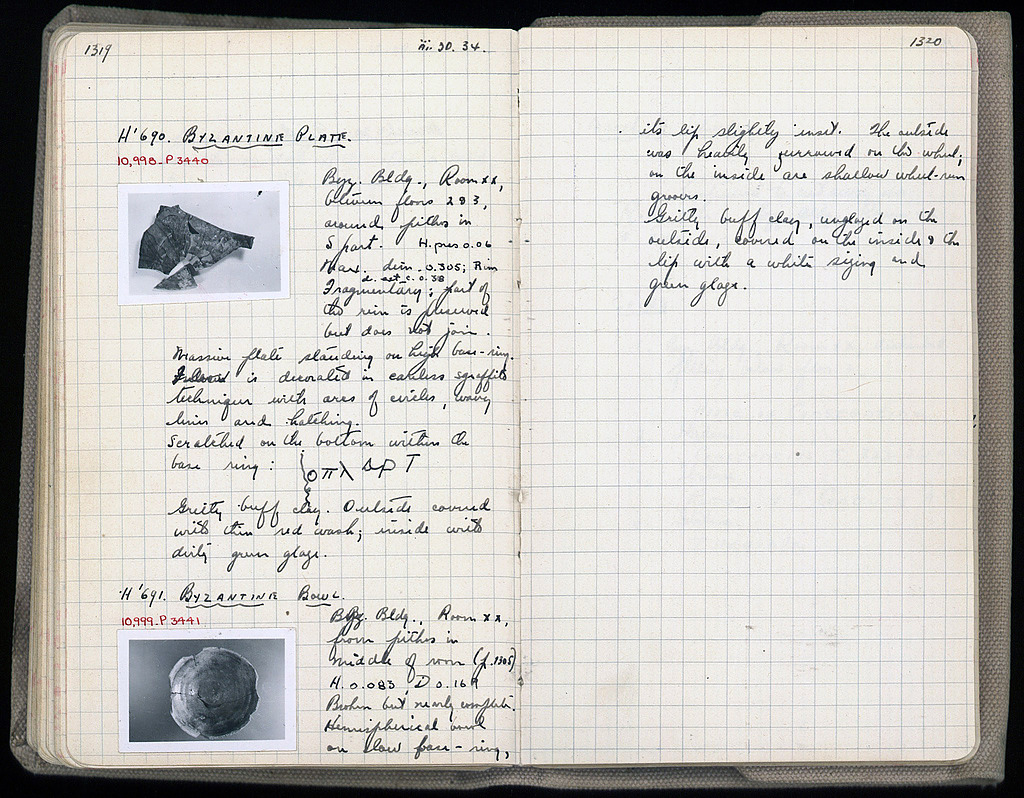 1319
iii. 30. 34.
H'690. BYZANTINE PLATE.
10,998-P 3440
Byz. Bldg., Room xx,
between floors 2 & 3,
around pithos in
S part. H. pres 0.06
Max. dim. 0.305; Rim
d. est. c. 0.38
Fragmentary; part of
the rim is preserved
but does not join.
Massive plate standing on high base-ring.
is decorated in careless sgraffito
technique with arcs of circles, wavy
lines and hatching.
Scratched on the bottom within the
base ring: οπλ ΔΡ Τ
Gritty buff clay. Outside covered
with thin red wash; inside with
dirty green glaze.
H'691. BYZANTINE BOWL.
10,999-P 3441
Byz. Bldg., Room xx,
from pithos in
middle of room (p. 1305)
H. 0.083, D 0.169
Broken but nearly complete.
Hemispherical bowl
on low base-ring,
1320
its lip slightly inset. The outside
was heavily furrowed on the wheel;
on the inside are shallow wheel-run
grooves.
Gritty buff clay, unglazed on the
outside, covered on the inside & the
lip with a white sizing and
green glaze.